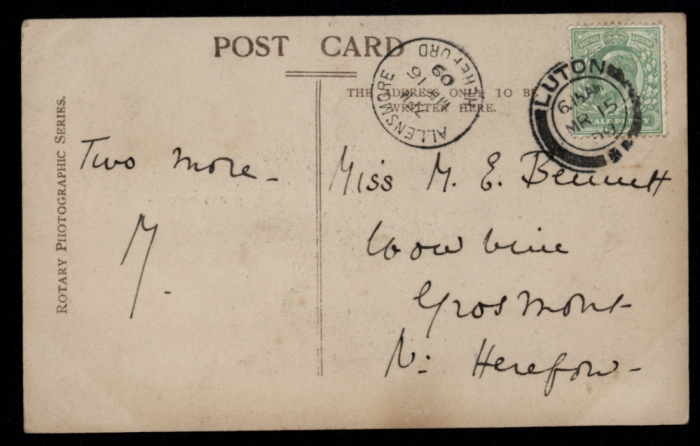 POST CARD
THE ADDRESS ONLY TO BE
WRITTEN HERE.
ROTARY PHOTOGRAPHIC SERIES.
ALLENSMORE
HEREFORD
16
09
LUTON
MR 15
09
HALF PENNY
Two more -
M.
Miss M. E. Bennett
Grosmont
Nr. Hereford